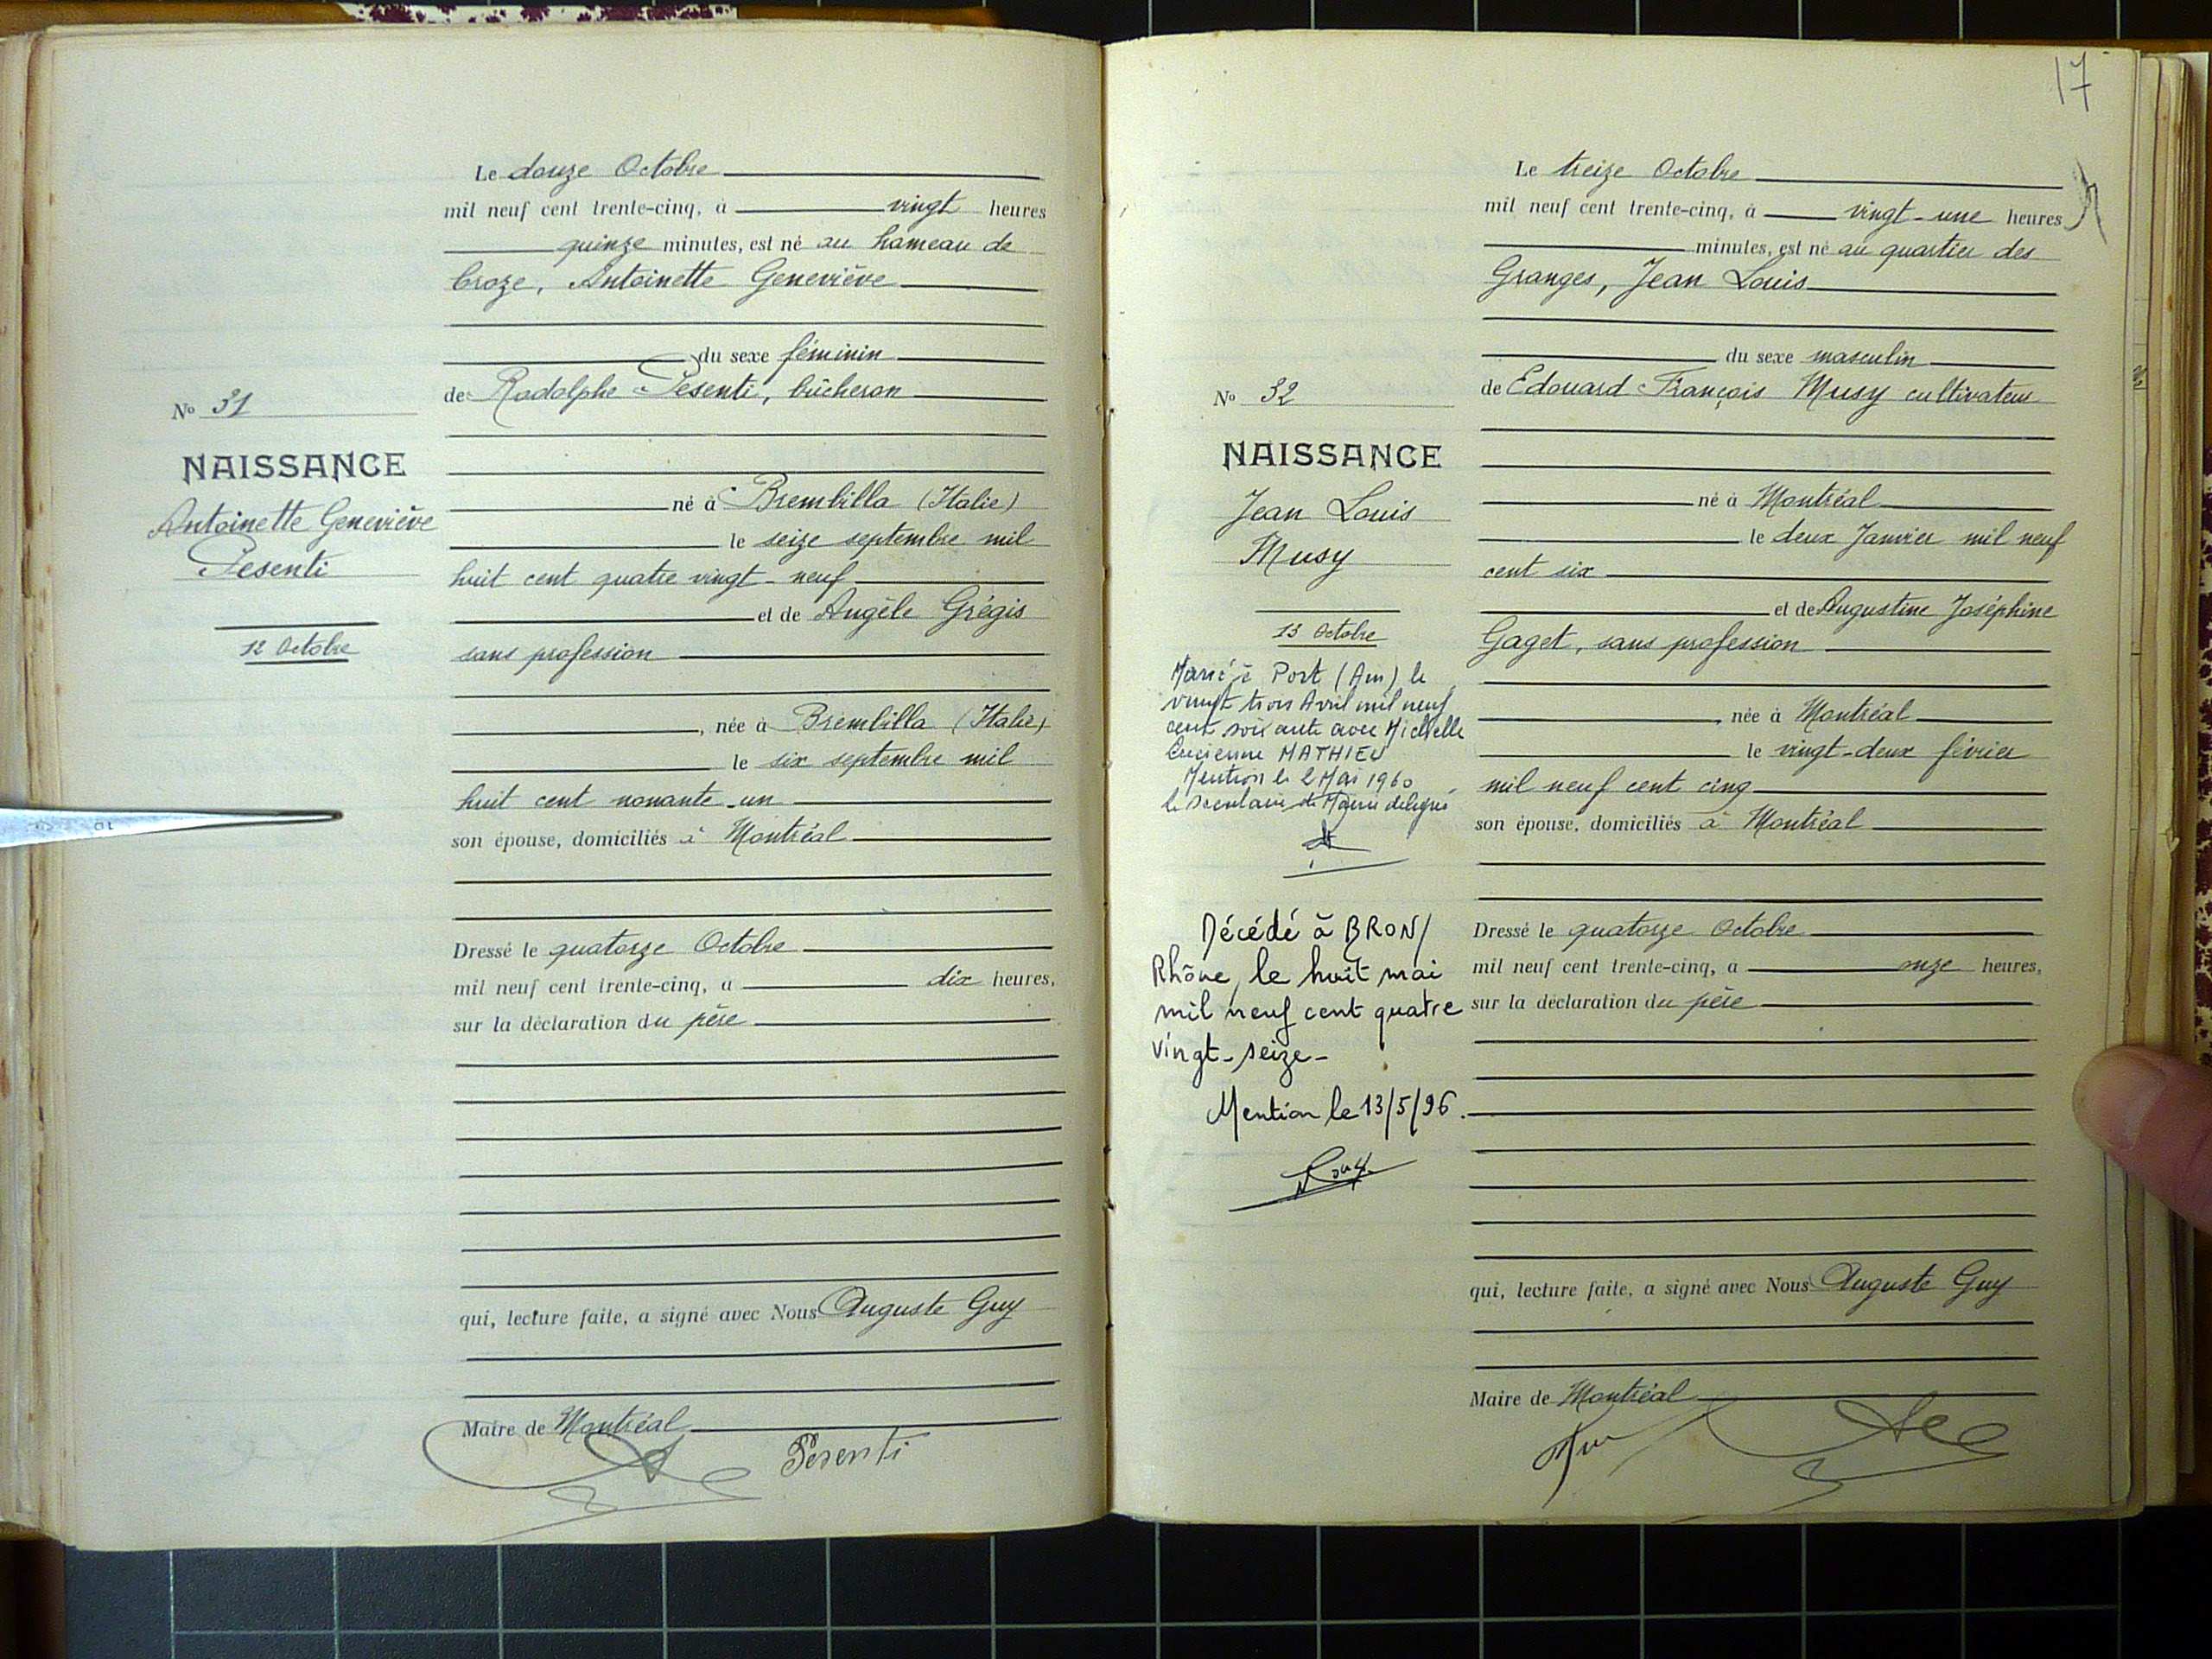 Le douze Octobre
mil neuf cent trente-cinq, à vingt heures
quinze minutes, est né au hameau de
Croze, Antoinette Geneviève
du sexe féminin
de Rodolphe Pesenti, bûcheron
No 31
NAISSANCE
Antoinette Geneviève
Pesenti
12 Octobre
né à Brembilla (Italie)
le seize septembre mil
huit cent quatre vingt-neuf
et de Angèle Grégis
sans profession
, née à Brembilla (Italie)
le six septembre mil
huit cent nonante-un
son épouse, domiciliés à Montréal
Dressé le quatorze Octobre
mil neuf cent trente-cinq, a dix heures,
sur la déclaration du père
qui, lecture faite, a signé avec Nous Auguste Guy
Maire de Montréal
Pesenti
17
Le treize Octobre
mil neuf cent trente-cinq, à vingt-une heures
minutes, est né au quartier des
Granges, Jean Louis
du sexe masculin
de Edouard François Musy cultivateur
No 32
NAISSANCE
Jean Louis
Musy
13 Octobre
Marié à Port (Ain) le
vingt trois Avril mil neuf
cent soixante avec Michelle
Lucienne MATHIEU
Mention le 2 Mai 1960
le secrétaire de Mairie délégué
Décédé à BRON/
Rhône, le huit mai
mil neuf cent quatre
vingt-seize-
Mention le 13/5/96.
né à Montréal
le deux Janvier mil neuf
cent six
et de Augustine Joséphine
Gaget, sans profession
, née à Montréal
le vingt-deux février
mil neuf cent cinq
son épouse, domiciliés à Montréal
Dressé le quatorze Octobre
mil neuf cent trente-cinq, a onze heures,
sur la déclaration du père
qui, lecture faite, a signé avec Nous Auguste Guy
Maire de Montréal